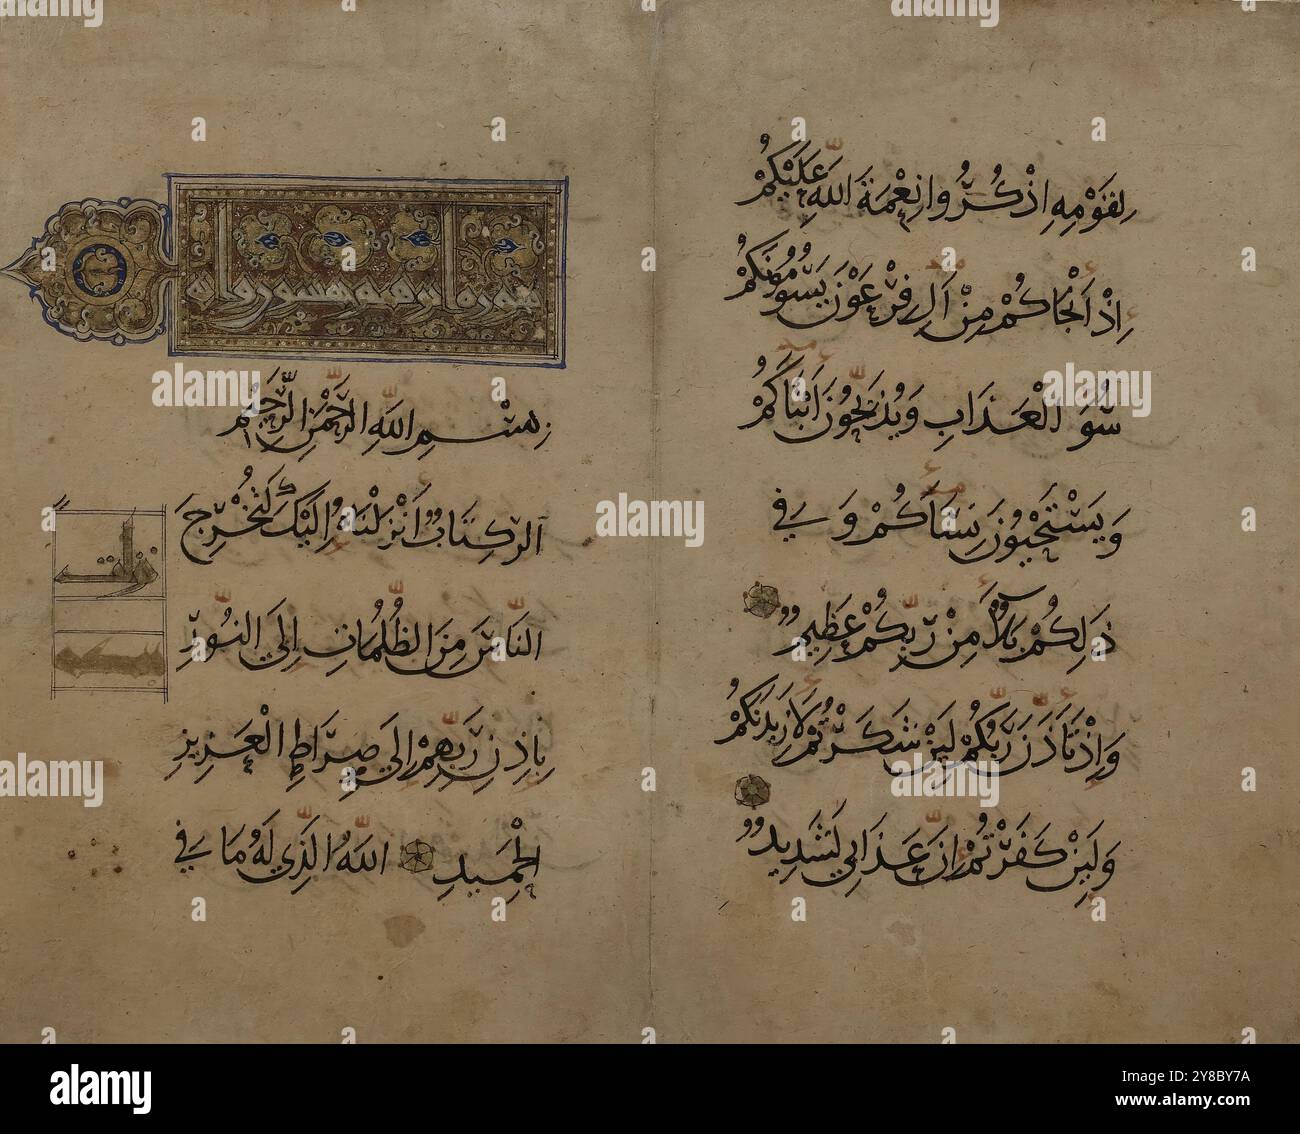 لِقَوْمِهِ اذْكُرُوا نِعْمَةَ اللَّهِ عَلَيْكُمْ
إِذْ أَنْجَاكُمْ مِنْ آلِ فِرْعَوْنَ يَسُومُونَكُمْ
سُوءَ الْعَذَابِ وَيُذَبِّحُونَ أَبْنَاءَكُمْ
وَيَسْتَحْيُونَ نِسَاءَكُمْ وَفِي
ذَلِكُمْ بَلَاءٌ مِنْ رَبِّكُمْ عَظِيمٌ
وَإِذْ تَأَذَّنَ رَبُّكُمْ لَئِنْ شَكَرْتُمْ لَأَزِيدَنَّكُمْ
وَلَئِنْ كَفَرْتُمْ إِنَّ عَذَابِي لَشَدِيدٌ
بِسْمِ اللَّهِ الرَّحْمَنِ الرَّحِيمِ
الر كِتَابٌ أَنْزَلْنَاهُ إِلَيْكَ لِتُخْرِجَ
النَّاسَ مِنَ الظُّلُمَاتِ إِلَى النُّورِ
بِإِذْنِ رَبِّهِمْ إِلَى صِرَاطِ الْعَزِيزِ
الْحَمِيدِ اللَّهِ الَّذِي لَهُ مَا فِي
alamy
alamy
Image ID: 2Y8BY7A
www.alamy.com